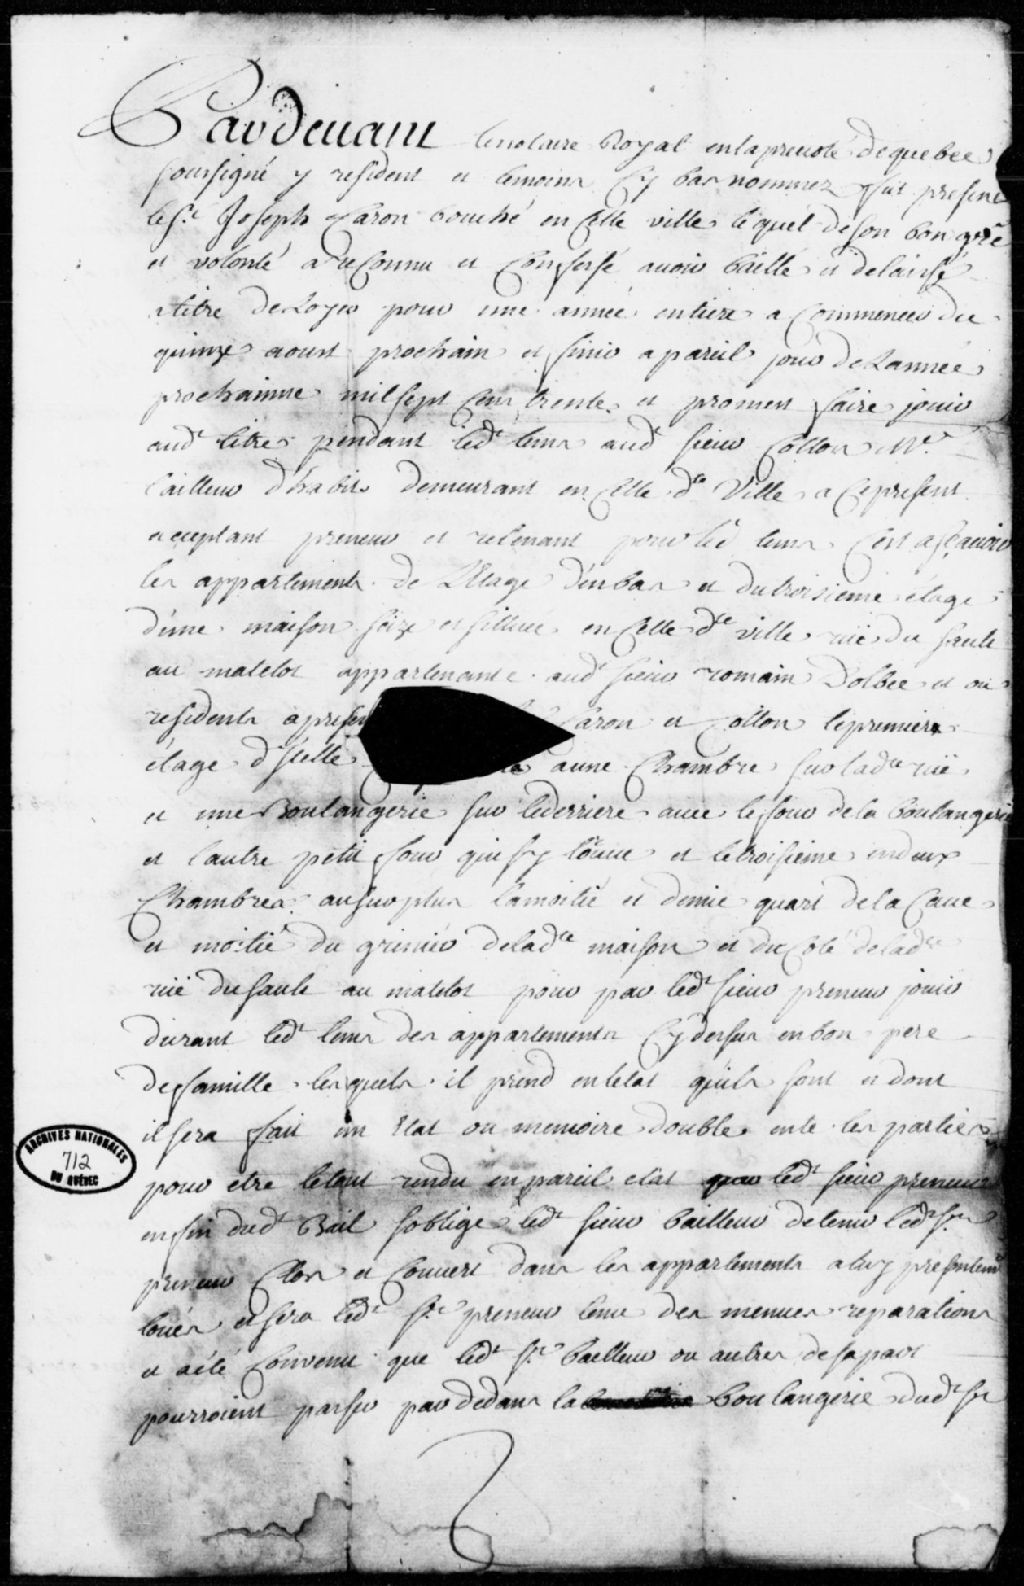 Pardevant le notaire Royal en la prevoté de quebec
soussigné y resident et temoins Cy bas nommez fut present
le Sr. Joseph Caron bouché en Cette ville lequel de son bon gré
et volonté a reConnu et Confessé avoir baillé et delaissé
a titre de Loyer pour une année entiere a Commencer du
quinze aoust prochain et finir a pareil jour de Lannée
prochainne mil sept Cens trente et promest faire jouir
aud.t titre pendant led.t tems aud.t sieur Cotton M.e
tailleur d'habits demeurant en Cette d.te Ville a Ce present
acceptant preneur et retenant pour led tems C'est asçavoir
les appartements de L'Etage d'enbas et du troisieme étage
d'une maison size et sittuée en Cette d.te ville rüe du Sault
au matelot appartenante aud.t sieur romain Dolbec et ou
residents a presen Caron et Cotton le premier
étage d'Icelle a une Chambre sur lad.te rüe
et une Boulangerie sur le derriere avec le four de la boulangerie
et l'autre petit four qui s'y trouve et le troisieme en deux
Chambres au surplus la moitié et demie quart de la Cave
et moitié du grenier de lad.te maison et du Coté de lad.te
rüe du Sault au matelot pour par led.t sieur preneur jouir
durant led.t tems des appartements Cy dessus en bon pere
de famille lesquels il prend en letat quils sont et dont
il sera fait un Etat ou memoire double entre les parties
pour etre letout rendu en pareil etat par led.t sieur preneur
en fin dud.t Bail s'oblige led.t sieur bailleur de tenir led.t Sr.
preneur Clos et Couvert dans les appartements a luy presentem.t
loués et sera led.t Sr. preneur tenu des menues reparations
et a été Convenu que led.t Sr. bailleur ou autres de sa part
pourroient passer par dedans la boulangerie dud.t Sr
ARCHIVES NATIONALES
712
DU QUÉBEC